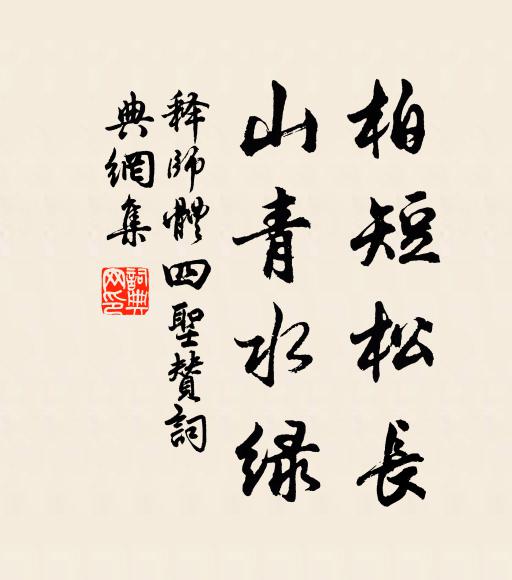 柏短松長
山青水緑
释師體四聖贊詞
典網集
詞典网印